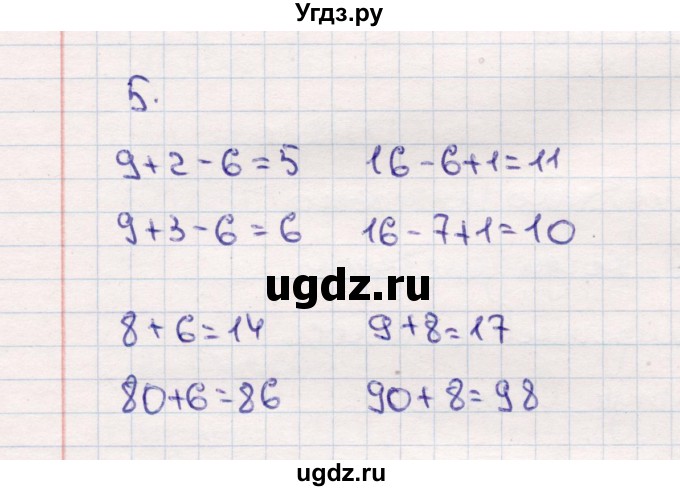 Угдз.ру
5.
9+2-6=5 16-6+1=11
9+3-6=6 16-7+1=10
ugdz.ru
8+6=14 9+8=17
80+6=86 90+8=98
ugdz.ru